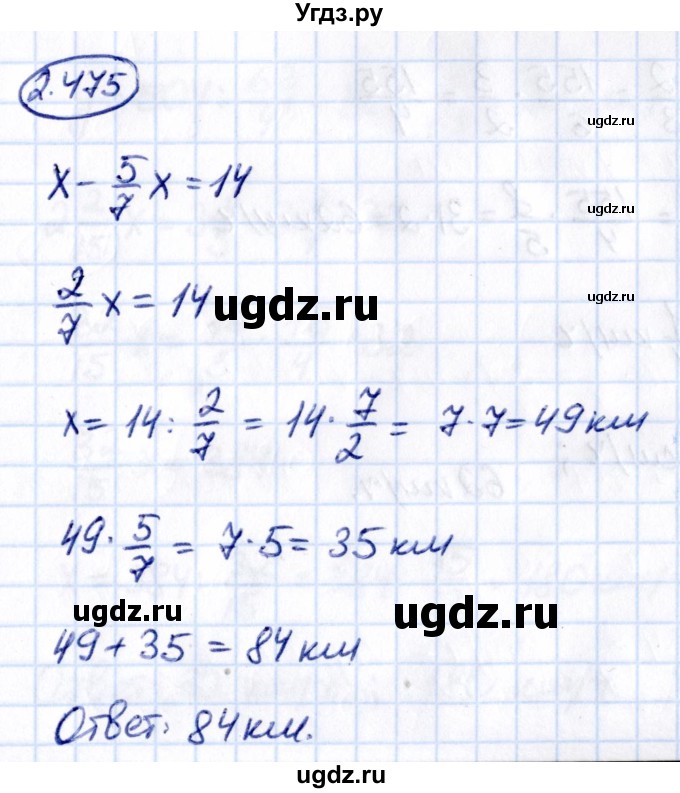 Угдз.ру
2.475
ugdz.ru
x - 5/7 x = 14
ugdz.ru
2/7 x = 14
ugdz.ru
ugdz.ru
x = 14 : 2/7 = 14 · 7/2 = 7 · 7 = 49 км
ugdz.ru
49 · 5/7 = 7 · 5 = 35 км
ugdz.ru
ugdz.ru
ugdz.ru
49 + 35 = 84 км
ugdz.ru
Ответ: 84 км.
ugdz.ru
ugdz.ru